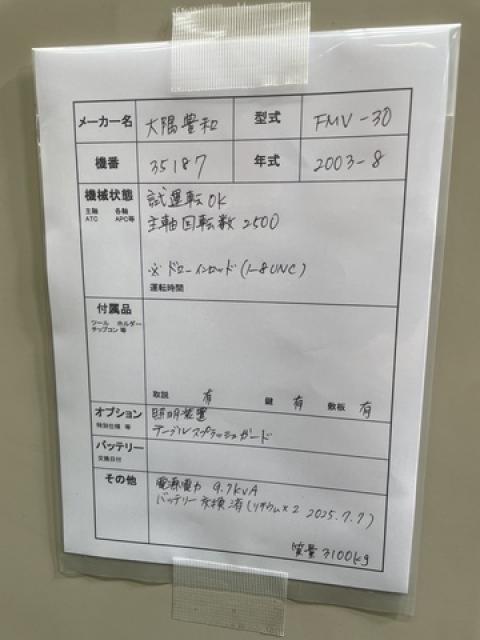 メーカー名 大隅豊和 型式 FMV-30
機番 35187 年式 2003-8
機械状態 試運転OK
主軸 各軸
ATC APC等
主軸回転数 2500
※ドローインロッド(1-8UNC)
運転時間
付属品
ツール ホルダー
チップコン 等
取説 有 鍵 有 敷板 有
オプション 照明装置
特別仕様 等
テーブルスプラッシュガード
バッテリー
交換日付
その他 電源電力 9.7kVA
バッテリー交換済(リチウム×2 2025.7.7)
質量 3100kg